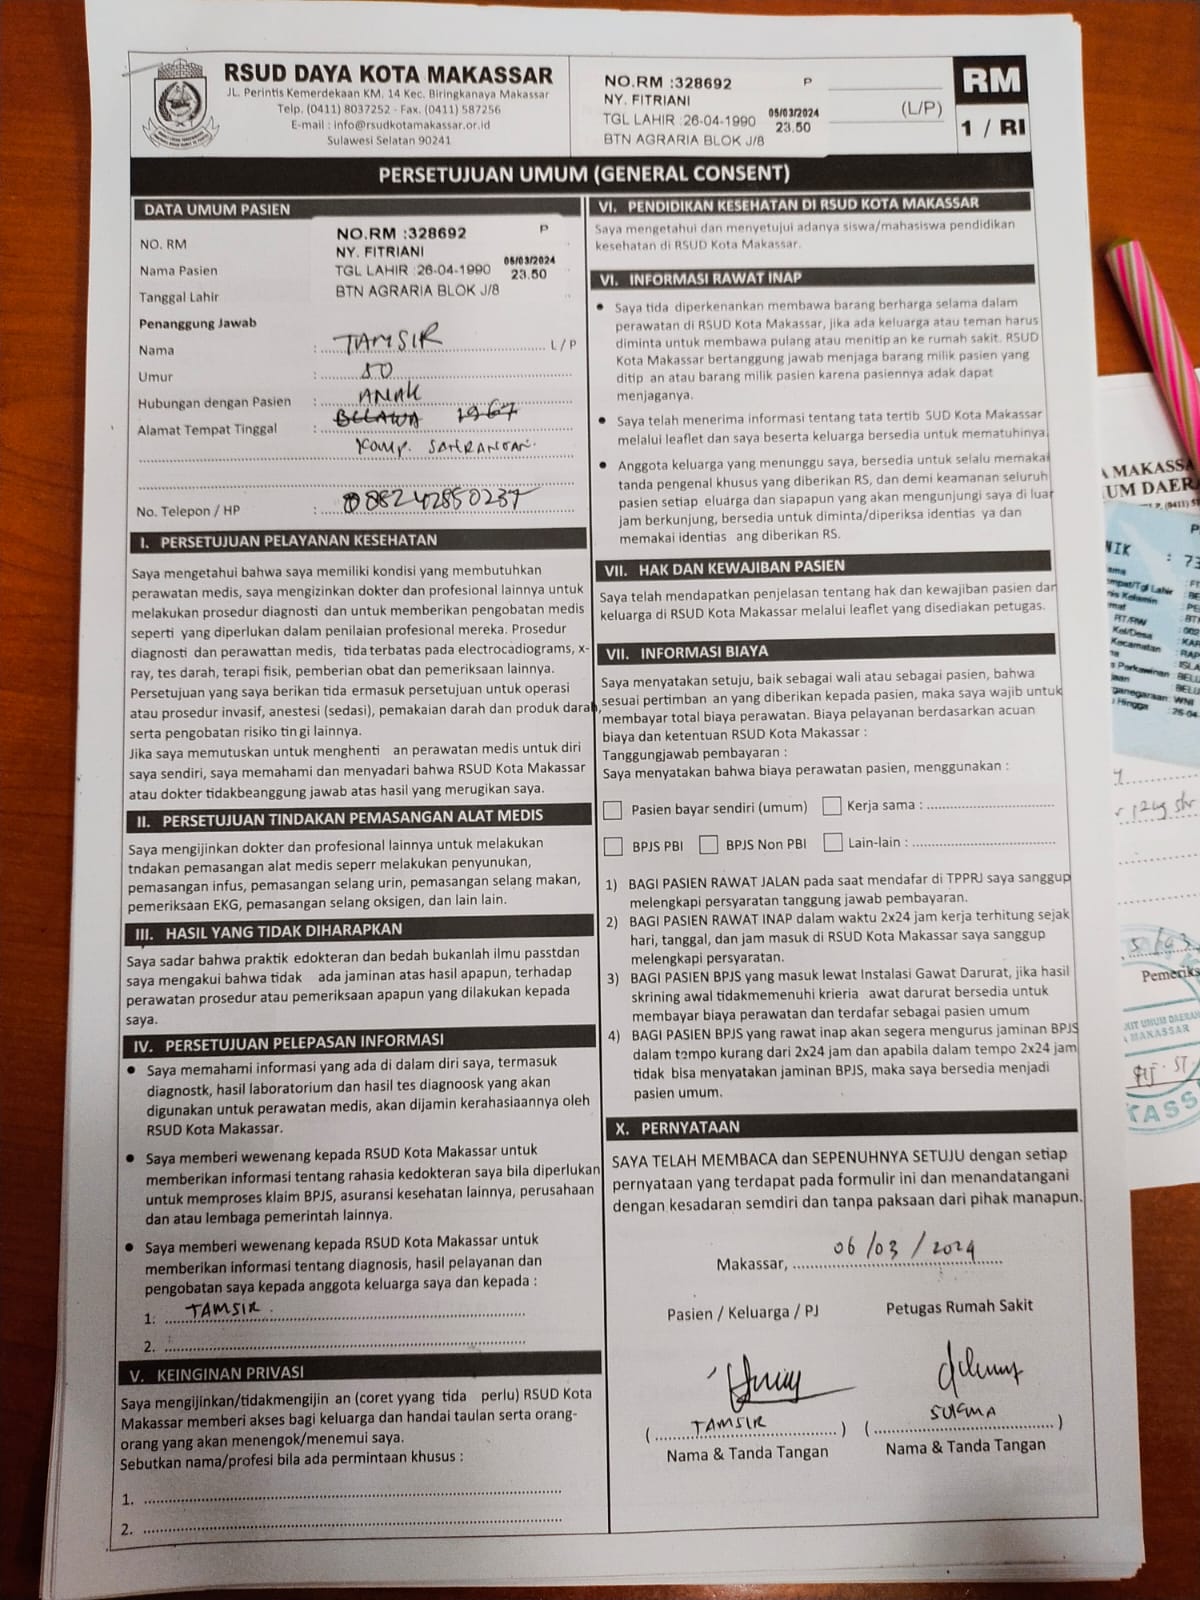 RSUD DAYA KOTA MAKASSAR
JL. Perintis Kemerdekaan KM. 14 Kec. Biringkanaya Makassar
Telp. (0411) 8037252 - Fax. (0411) 587256
E-mail : info@rsudkotamakassar.or.id
Sulawesi Selatan 90241
NO.RM :328692 P
NY. FITRIANI
TGL LAHIR :26-04-1990 05/03/2024 23.50
BTN AGRARIA BLOK J/8
(L/P)
RM
1 / RI
PERSETUJUAN UMUM (GENERAL CONSENT)
DATA UMUM PASIEN
NO. RM
Nama Pasien
Tanggal Lahir
NO.RM :328692 P
NY. FITRIANI
TGL LAHIR :26-04-1990 05/03/2024 23.50
BTN AGRARIA BLOK J/8
Penanggung Jawab
Nama : TAMSIR L/P
Umur : 50
Hubungan dengan Pasien : ANAK
Alamat Tempat Tinggal : BELAWA 1967
Komp.
No. Telepon / HP : 088242850237
I. PERSETUJUAN PELAYANAN KESEHATAN
Saya mengetahui bahwa saya memiliki kondisi yang membutuhkan
perawatan medis, saya mengizinkan dokter dan profesional lainnya untuk
melakukan prosedur diagnosti dan untuk memberikan pengobatan medis
seperti yang diperlukan dalam penilaian profesional mereka. Prosedur
diagnosti dan perawattan medis, tida terbatas pada electrocadiograms, x-
ray, tes darah, terapi fisik, pemberian obat dan pemeriksaan lainnya.
Persetujuan yang saya berikan tida ermasuk persetujuan untuk operasi
atau prosedur invasif, anestesi (sedasi), pemakaian darah dan produk darah,
serta pengobatan risiko tin gi lainnya.
Jika saya memutuskan untuk menghenti an perawatan medis untuk diri
saya sendiri, saya memahami dan menyadari bahwa RSUD Kota Makassar
atau dokter tidakbeanggung jawab atas hasil yang merugikan saya.
II. PERSETUJUAN TINDAKAN PEMASANGAN ALAT MEDIS
Saya mengijinkan dokter dan profesional lainnya untuk melakukan
tndakan pemasangan alat medis seperr melakukan penyunukan,
pemasangan infus, pemasangan selang urin, pemasangan selang makan,
pemeriksaan EKG, pemasangan selang oksigen, dan lain lain.
III. HASIL YANG TIDAK DIHARAPKAN
Saya sadar bahwa praktik edokteran dan bedah bukanlah ilmu passtdan
saya mengakui bahwa tidak ada jaminan atas hasil apapun, terhadap
perawatan prosedur atau pemeriksaan apapun yang dilakukan kepada
saya.
IV. PERSETUJUAN PELEPASAN INFORMASI
• Saya memahami informasi yang ada di dalam diri saya, termasuk
diagnostk, hasil laboratorium dan hasil tes diagnoosk yang akan
digunakan untuk perawatan medis, akan dijamin kerahasiaannya oleh
RSUD Kota Makassar.
• Saya memberi wewenang kepada RSUD Kota Makassar untuk
memberikan informasi tentang rahasia kedokteran saya bila diperlukan
untuk memproses klaim BPJS, asuransi kesehatan lainnya, perusahaan
dan atau lembaga pemerintah lainnya.
• Saya memberi wewenang kepada RSUD Kota Makassar untuk
memberikan informasi tentang diagnosis, hasil pelayanan dan
pengobatan saya kepada anggota keluarga saya dan kepada :
1. TAMSIR
2.
V. KEINGINAN PRIVASI
Saya mengijinkan/tidakmengijin an (coret yyang tida perlu) RSUD Kota
Makassar memberi akses bagi keluarga dan handai taulan serta orang-
orang yang akan menengok/menemui saya.
Sebutkan nama/profesi bila ada permintaan khusus :
1.
2.
VI. PENDIDIKAN KESEHATAN DI RSUD KOTA MAKASSAR
Saya mengetahui dan menyetujui adanya siswa/mahasiswa pendidikan
kesehatan di RSUD Kota Makassar.
VI. INFORMASI RAWAT INAP
• Saya tida diperkenankan membawa barang berharga selama dalam
perawatan di RSUD Kota Makassar, jika ada keluarga atau teman harus
diminta untuk membawa pulang atau menitip an ke rumah sakit. RSUD
Kota Makassar bertanggung jawab menjaga barang milik pasien yang
ditip an atau barang milik pasien karena pasiennya adak dapat
menjaganya.
• Saya telah menerima informasi tentang tata tertib SUD Kota Makassar
melalui leaflet dan saya beserta keluarga bersedia untuk mematuhinya.
• Anggota keluarga yang menunggu saya, bersedia untuk selalu memakai
tanda pengenal khusus yang diberikan RS, dan demi keamanan seluruh
pasien setiap eluarga dan siapapun yang akan mengunjungi saya di luar
jam berkunjung, bersedia untuk diminta/diperiksa identias ya dan
memakai identias ang diberikan RS.
VII. HAK DAN KEWAJIBAN PASIEN
Saya telah mendapatkan penjelasan tentang hak dan kewajiban pasien dan
keluarga di RSUD Kota Makassar melalui leaflet yang disediakan petugas.
VII. INFORMASI BIAYA
Saya menyatakan setuju, baik sebagai wali atau sebagai pasien, bahwa
sesuai pertimban an yang diberikan kepada pasien, maka saya wajib untuk
membayar total biaya perawatan. Biaya pelayanan berdasarkan acuan
biaya dan ketentuan RSUD Kota Makassar :
Tanggungjawab pembayaran :
Saya menyatakan bahwa biaya perawatan pasien, menggunakan :
Pasien bayar sendiri (umum) Kerja sama :
BPJS PBI BPJS Non PBI Lain-lain :
1) BAGI PASIEN RAWAT JALAN pada saat mendafar di TPPRJ saya sanggup
melengkapi persyaratan tanggung jawab pembayaran.
2) BAGI PASIEN RAWAT INAP dalam waktu 2x24 jam kerja terhitung sejak
hari, tanggal, dan jam masuk di RSUD Kota Makassar saya sanggup
melengkapi persyaratan.
3) BAGI PASIEN BPJS yang masuk lewat Instalasi Gawat Darurat, jika hasil
skrining awal tidakmemenuhi krieria awat darurat bersedia untuk
membayar biaya perawatan dan terdafar sebagai pasien umum
4) BAGI PASIEN BPJS yang rawat inap akan segera mengurus jaminan BPJS
dalam tempo kurang dari 2x24 jam dan apabila dalam tempo 2x24 jam
tidak bisa menyatakan jaminan BPJS, maka saya bersedia menjadi
pasien umum.
X. PERNYATAAN
SAYA TELAH MEMBACA dan SEPENUHNYA SETUJU dengan setiap
pernyataan yang terdapat pada formulir ini dan menandatangani
dengan kesadaran semdiri dan tanpa paksaan dari pihak manapun.
Makassar, 06/03/2024
Pasien / Keluarga / PJ Petugas Rumah Sakit
( TAMSIR ) ( )
Nama & Tanda Tangan Nama & Tanda Tangan
A MAKASSA
UM DAERA
NIK : 73
Pemeriks